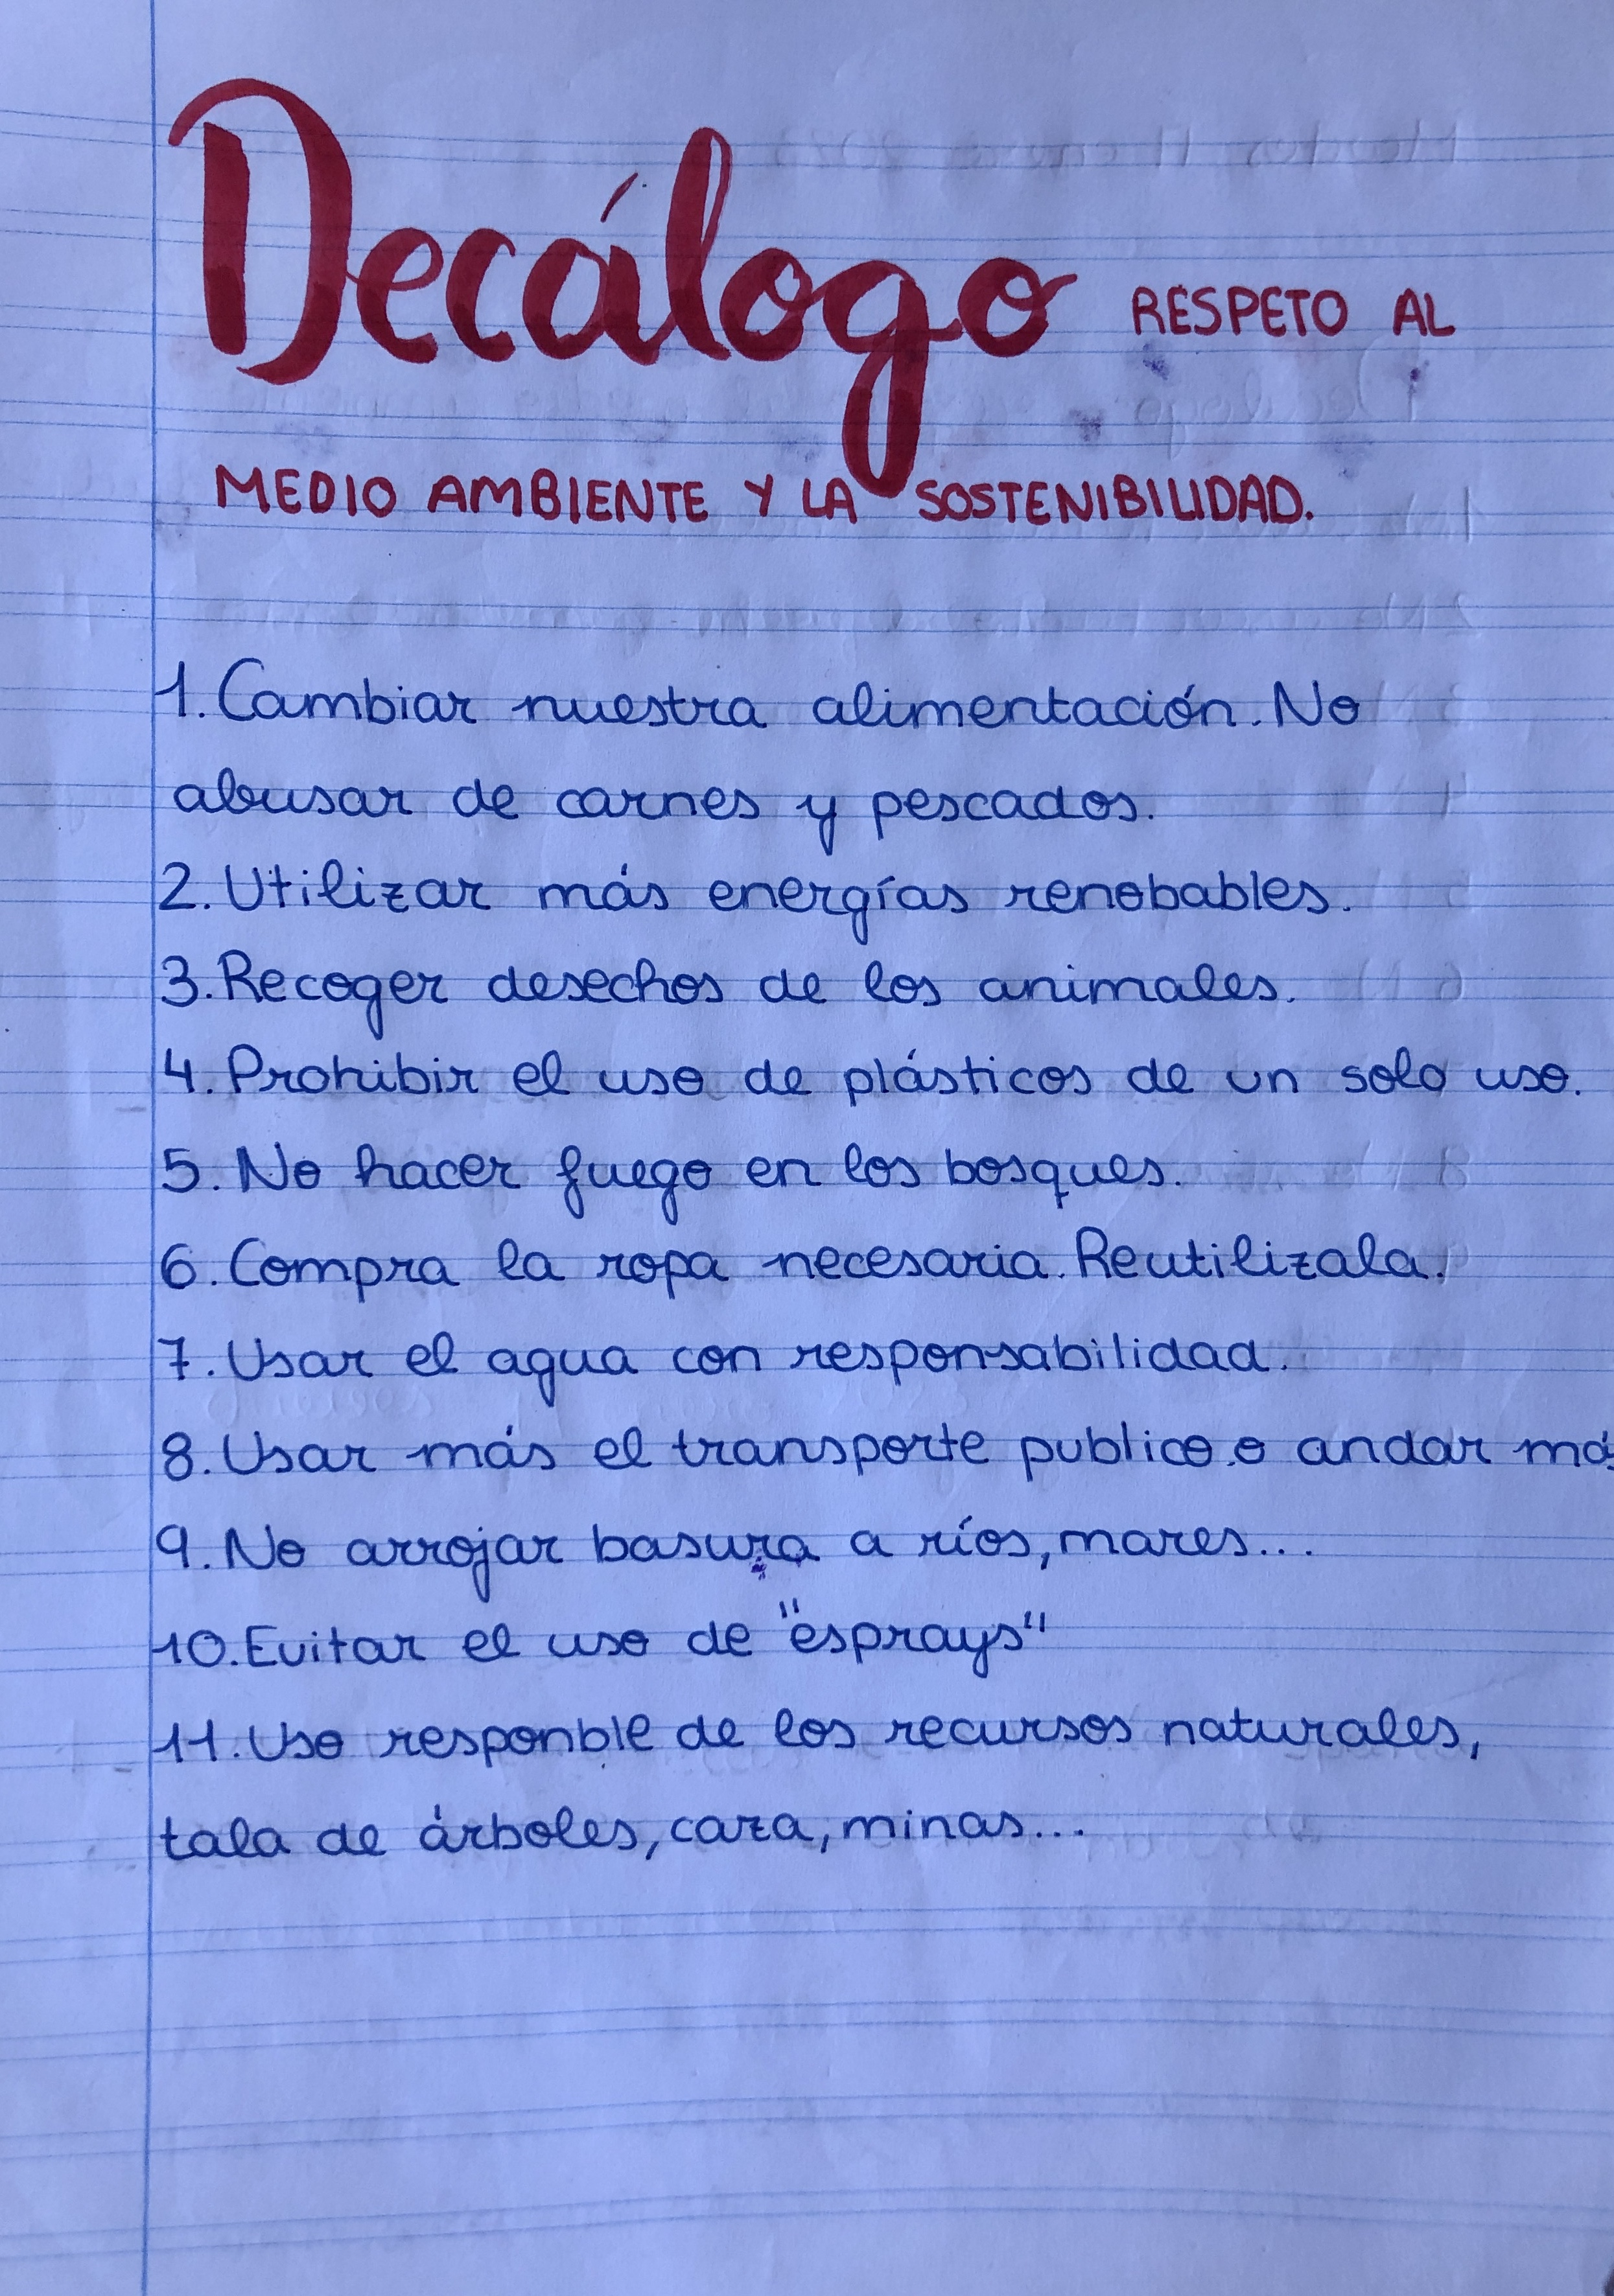 Decálogo RESPETO AL
MEDIO AMBIENTE Y LA SOSTENIBILIDAD.
1. Cambiar nuestra alimentación. No
abusar de carnes y pescados.
2. Utilizar más energías renobables.
3. Recoger desechos de los animales.
4. Prohibir el uso de plásticos de un solo uso.
5. No hacer fuego en los bosques.
6. Compra la ropa necesaria. Reutilizala.
7. Usar el agua con responsabilidad.
8. Usar más el transporte publico o andar más
9. No arrojar basura a ríos, mares...
10. Evitar el uso de "esprays"
11. Uso responble de los recursos naturales,
tala de árboles, caza, minas...